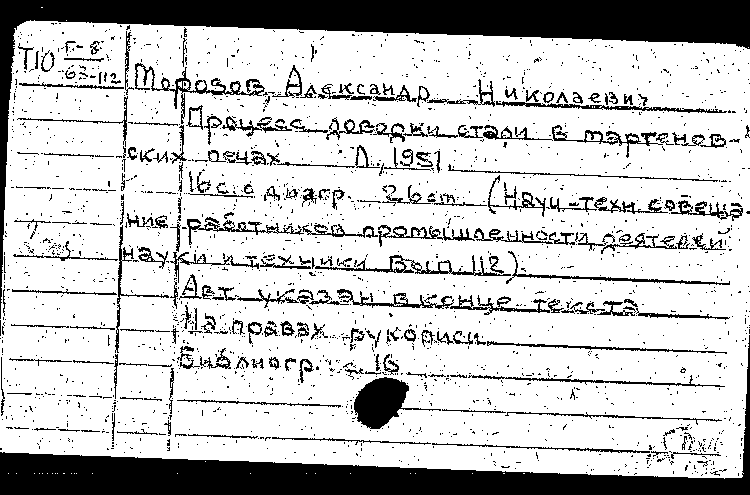 Т10 Г-8
63-112
Морозов, Александр Николаевич
Процесс доводки стали в мартенов-
ских печах. Л., 1951.
16 с. с диагр. 26 см. (Науч-техн. совеща-
ние работников промышленности, деятелей
науки и техники Вып. 112).
Авт. указан в конце текста
На правах рукописи
Библиогр.: с. 16